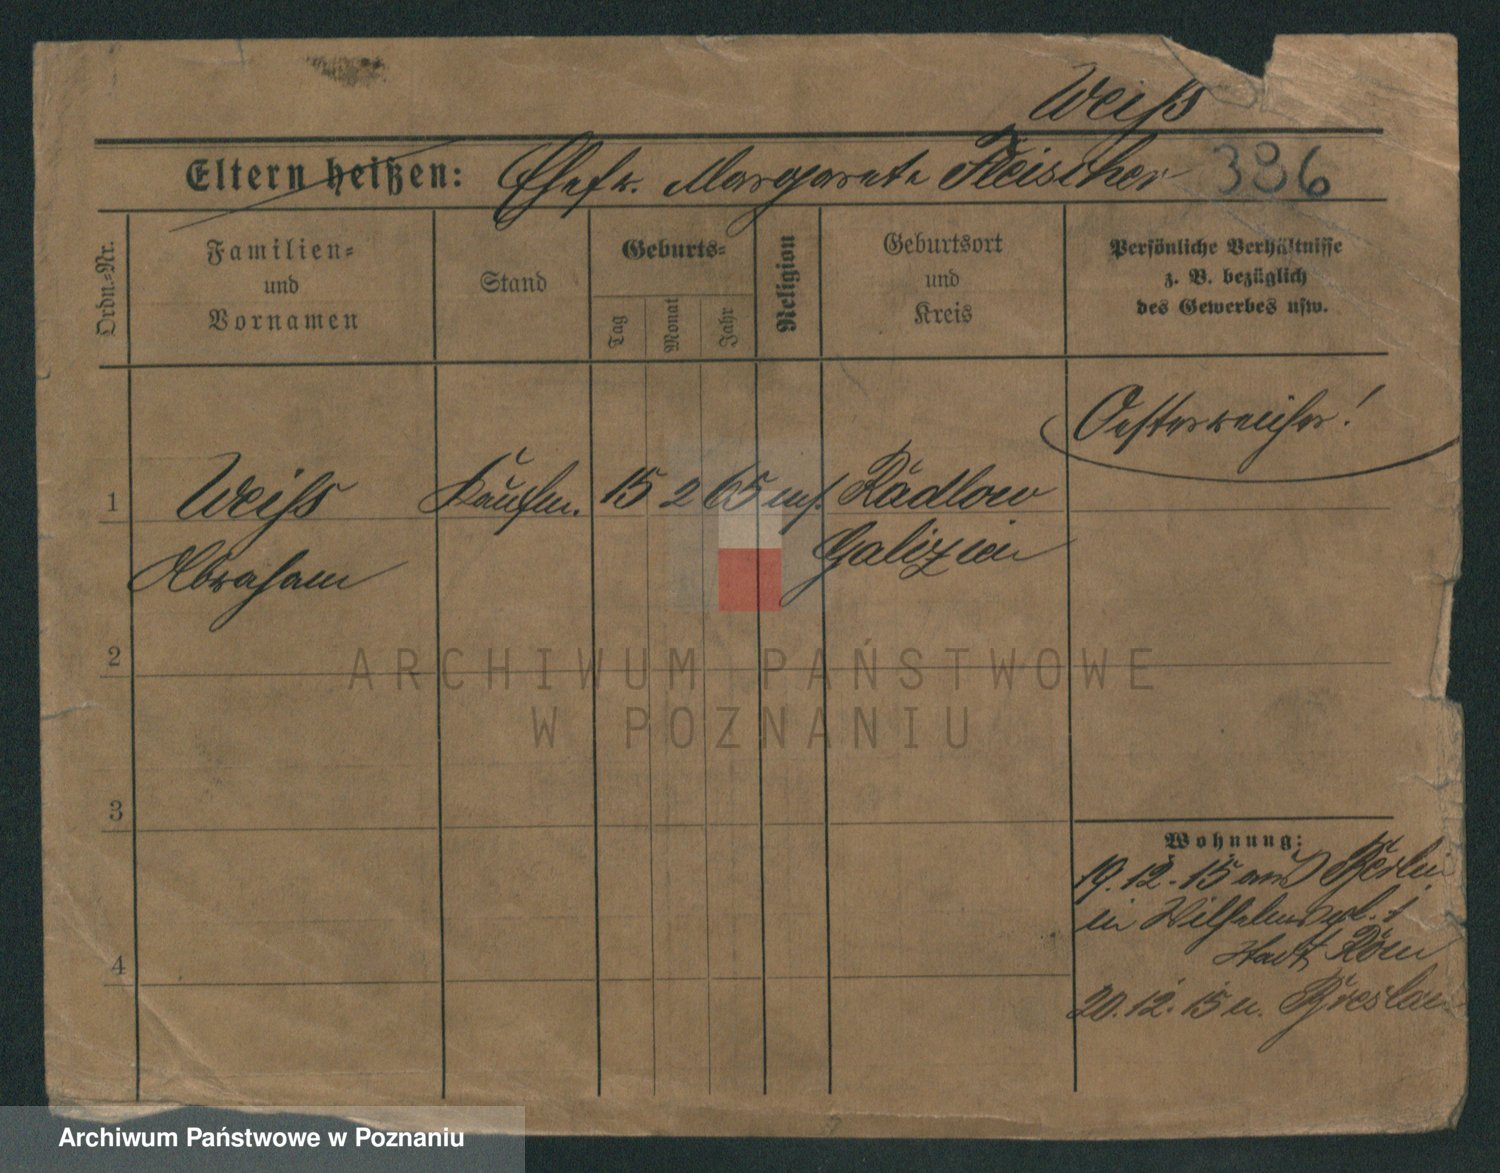 Weiß
Eltern heißen: Ehefr. Margarete Fleischer 386
Ordn.-Nr.
Familien-
und
Vornamen
Stand
Geburts-
Tag
Monat
Jahr
Religion
Geburtsort
und
Kreis
Persönliche Verhältnisse
z. B. bezüglich
des Gewerbes usw.
Oesterreicher!
1 Weiß Kaufm. 15 2 65 mos. Radlow
Abraham Galizien
2
3
4
Wohnung:
19.12.15 aus Berlin
in Wilhelmspl. 1
Stadt Rom
20.12.15 n. Breslau
ARCHIWUM PAŃSTWOWE
W POZNANIU
Archiwum Państwowe w Poznaniu